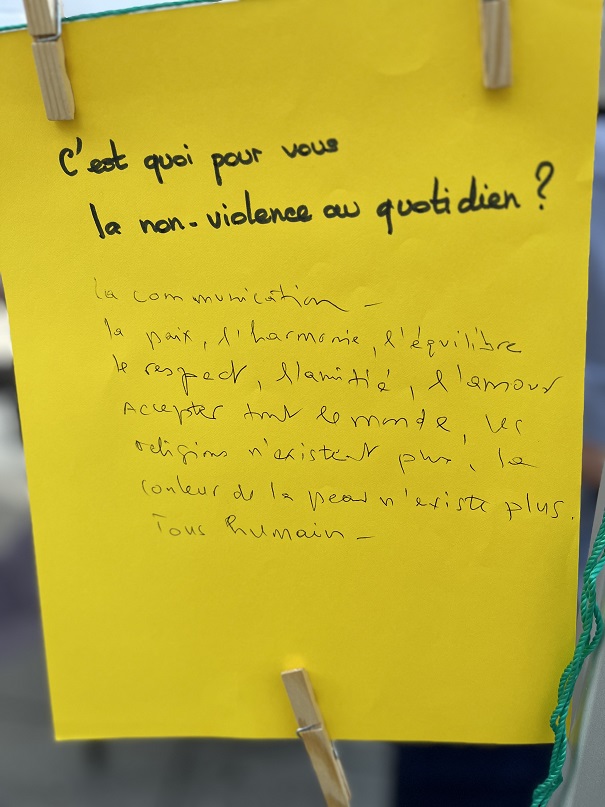 C'est quoi pour vous
la non-violence au quotidien ?
la communication -
la paix, l'harmonie, l'équilibre
le respect, l'amitié, l'amour
Accepter tout le monde, les
religions n'existent plus, la
couleur de la peau n'existe plus.
Tous humain -